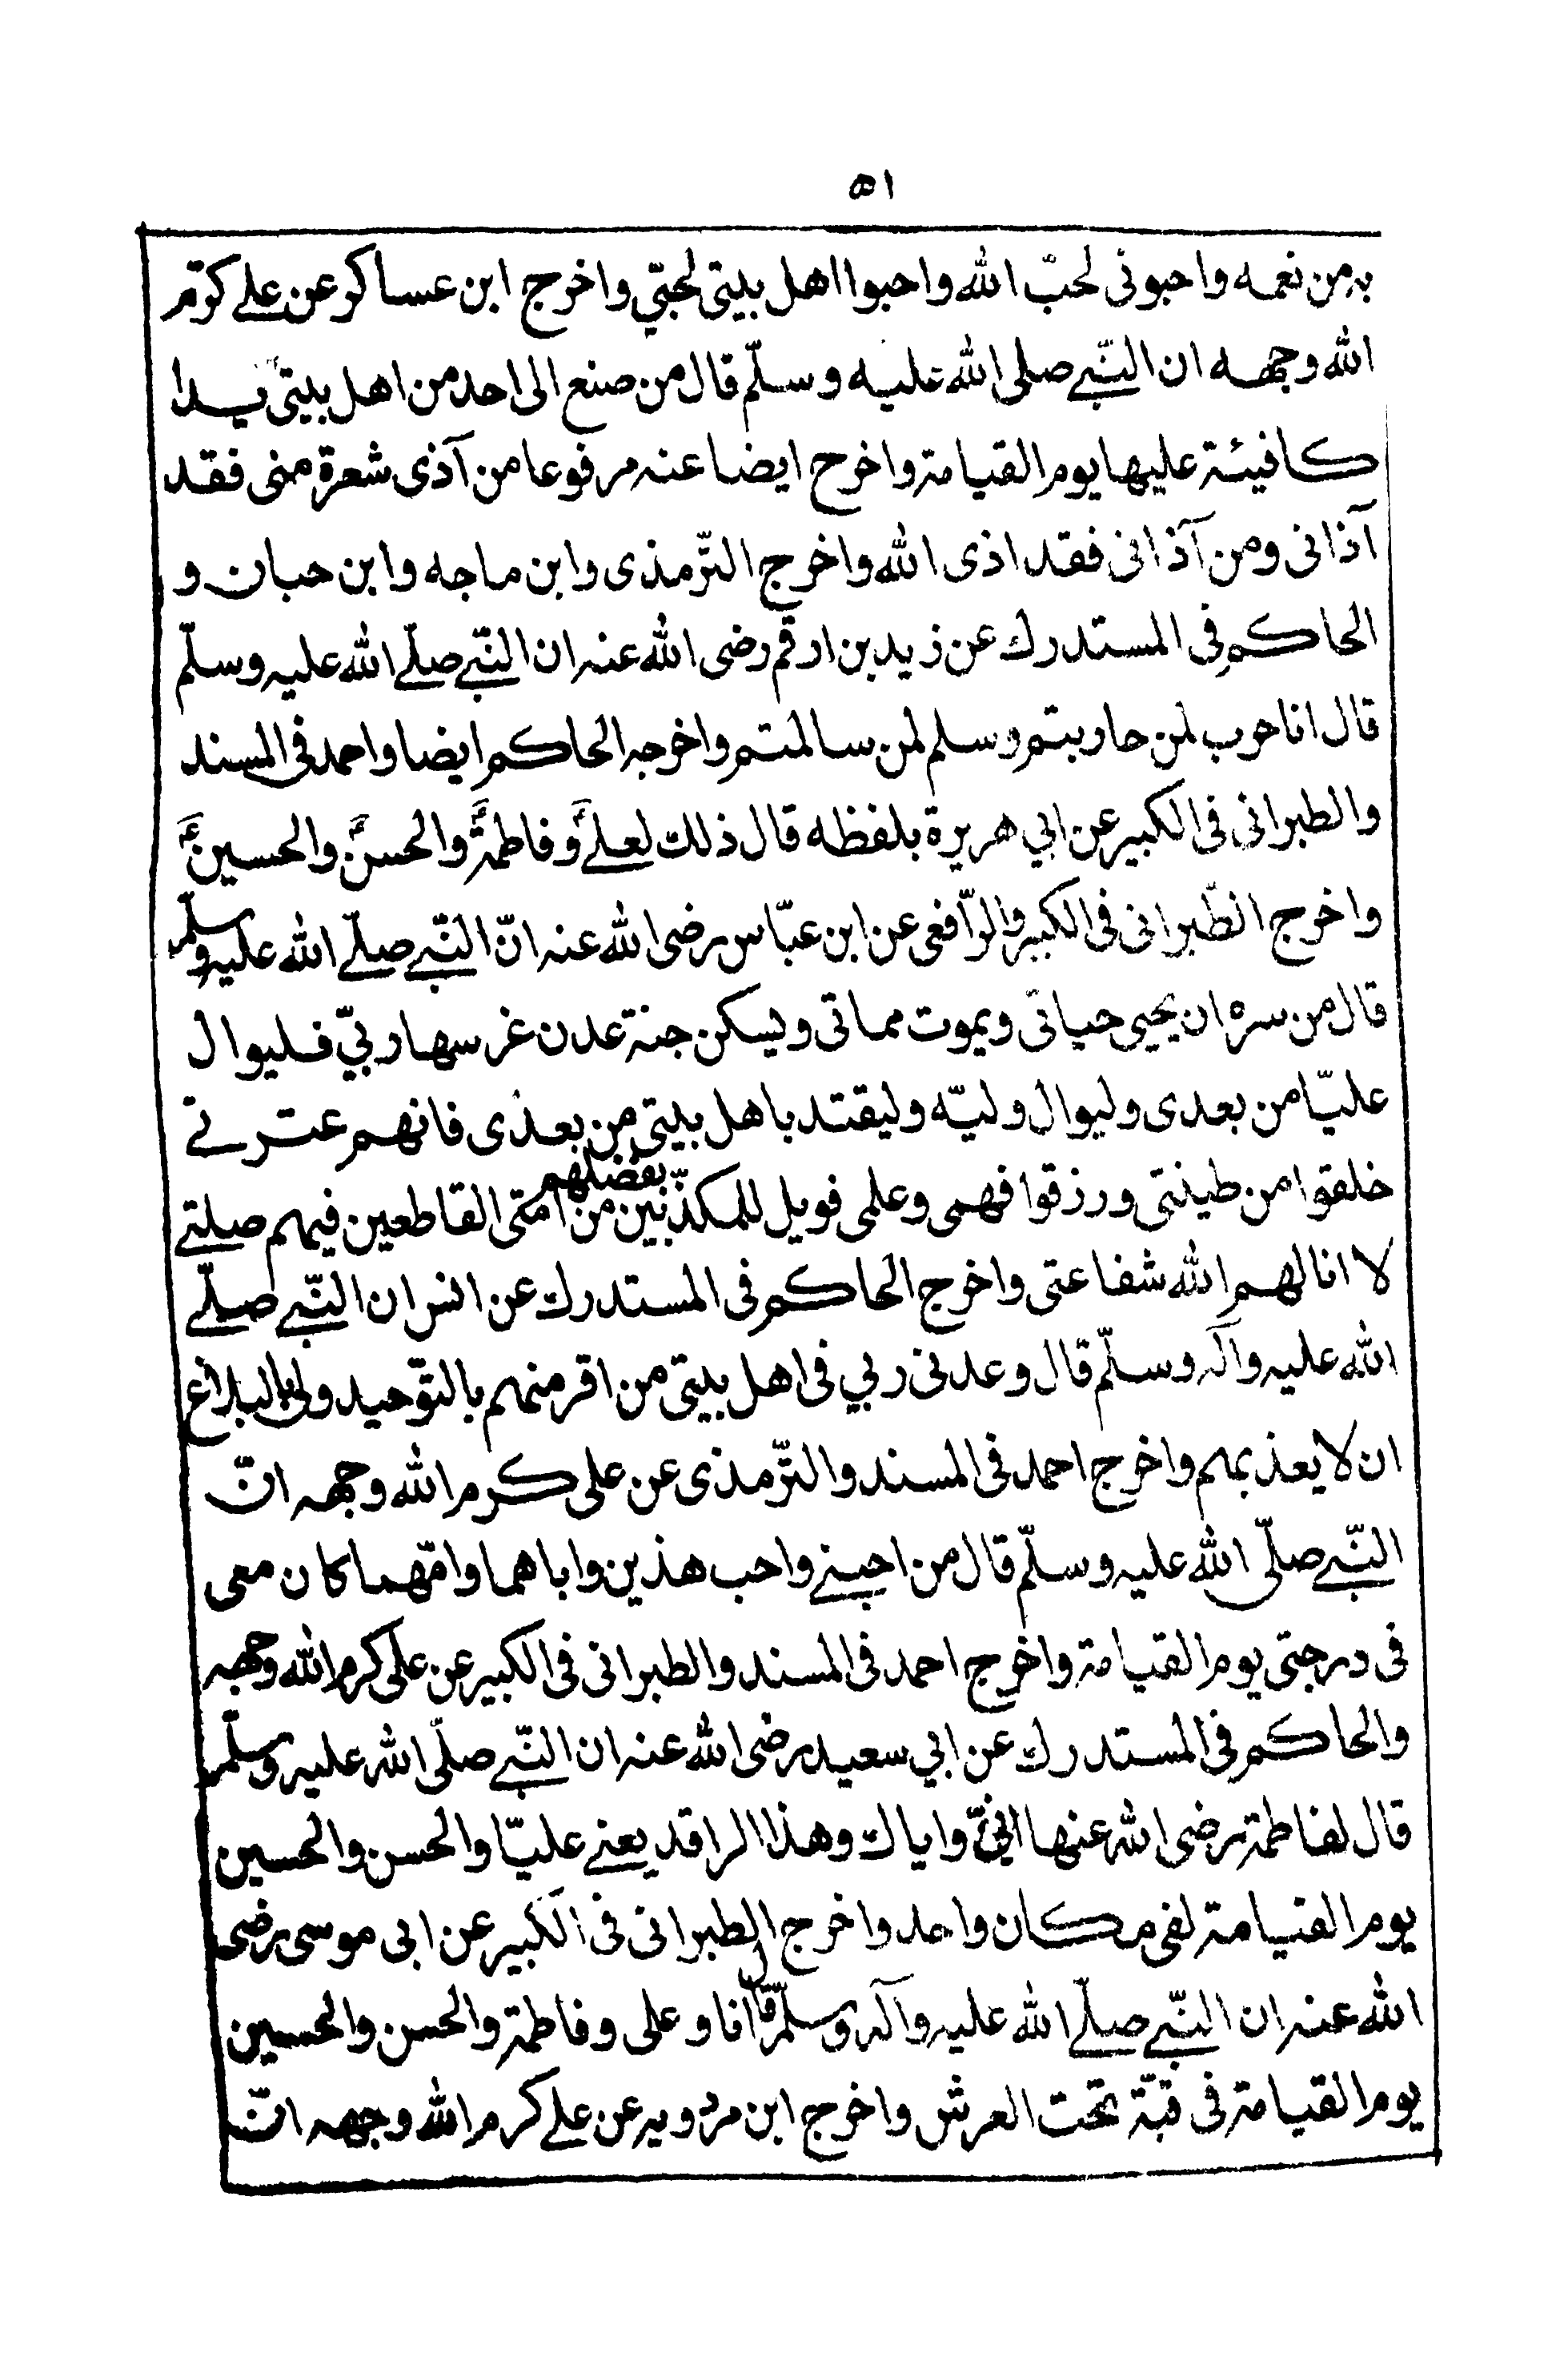 ٥١
به من نعمه واحبونى لحبّ الله واحبوا اهل بيتى لحبّي واخرج ابن عساكر عن على كرّم
الله وجهه ان النّبى صلى الله عليه وسلّم قال من صنع الى احد من اهل بيتى يدا
كافيته عليها يوم القيامة واخرج ايضا عنه مرفوعا من آذى شعرة منى فقد
آذانى ومن آذانى فقد اذى الله واخرج التّرمذى وابن ماجه وابن حبان و
الحاكم فى المستدرك عن زيد بن ارقم رضى الله عنه ان النّبى صلّى الله عليه وسلّم
قال انا حرب لمن حاربتم وسلم لمن سالمتم واخرجه الحاكم ايضا واحمد فى المسند
والطبرانى فى الكبير عن ابي هريرة بلفظه قال ذلك لعلى وفاطمة والحسن والحسين
واخرج الطّبرانى فى الكبير والرّافعى عن ابن عبّاس رضى الله عنه انّ النّبى صلّى الله عليه وسلّم
قال من سره ان يحيى حياتى ويموت مماتى ويسكن جنة عدن غرسها ربّي فليوال
عليّا من بعدى وليوال وليّه وليقتد باهل بيتى من بعدى فانهم عترتى
خلقوا من طينتى ورزقوا فهمى وعلمى فويل للمكذّبين بفضلهم من امتى القاطعين فيهم صلتى
لا انالهم الله شفاعتى واخرج الحاكم فى المستدرك عن انس ان النّبى صلّى
الله عليه وآله وسلّم قال وعدنى ربي فى اهل بيتى من اقر منهم بالتّوحيد ولى بالبلاغ
ان لا يعذبهم واخرج احمد فى المسند والتّرمذى عن على كرم الله وجهه انّ
النّبى صلّى الله عليه وسلّم قال من احبنى واحب هذين واباهما وامّهما كان معى
فى درجتى يوم القيامة واخرج احمد فى المسند والطبرانى فى الكبير عن على كرم الله وجهه
والحاكم فى المستدرك عن ابي سعيد رضى الله عنه ان النّبى صلّى الله عليه وسلّم
قال لفاطمة رضى الله عنها انّي واياك وهذا الراقد يعنى عليّا والحسن والحسين
يوم القيامة لفى مكان واحد واخرج الطبرانى فى الكبير عن ابى موسى رضى
الله عنه ان النّبى صلّى الله عليه وآله وسلّم قال انا وعلى وفاطمة والحسن والحسين
يوم القيامة فى قبّة تحت العرش واخرج ابن مردويه عن على كرم الله وجهه انّ